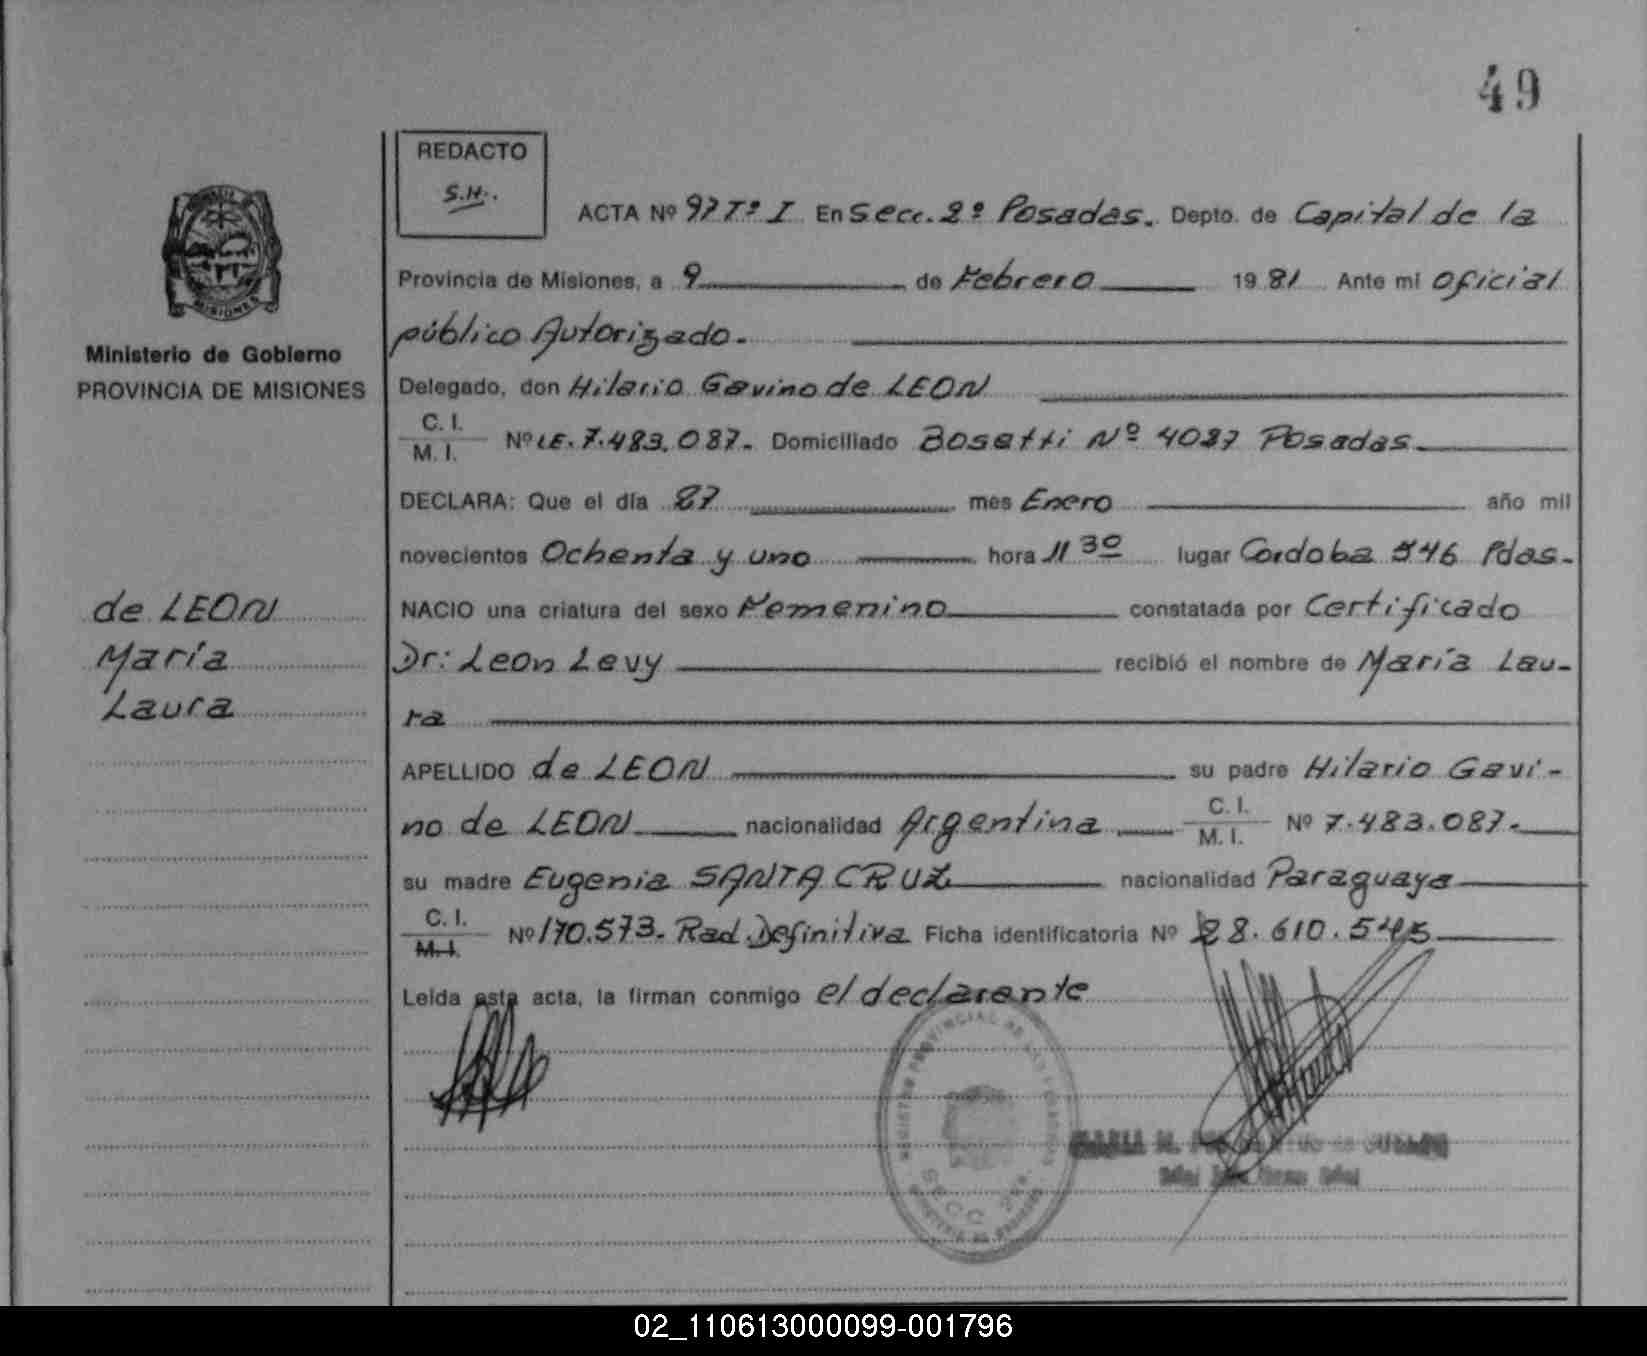 49
REDACTO
S.H.
ACTA Nº 97 Tº I En Secc. 2º Posadas. Depto. de Capital de la
Provincia de Misiones, a 9 de Febrero 1981 Ante mi oficial
público Autorizado.
MISIONES
Ministerio de Gobierno
PROVINCIA DE MISIONES
Delegado, don Hilario Gavino de LEON
C. I.
M. I. Nº LE. 7.483.087. Domiciliado Bosetti Nº 4087 Posadas
DECLARA: Que el día 27 mes Enero año mil
novecientos Ochenta y uno hora 11 30 lugar Cordoba 546 Pdas.
de LEON
María
Laura
NACIO una criatura del sexo Femenino constatada por Certificado
Dr: Leon Levy recibió el nombre de María Lau-
ra
APELLIDO de LEON su padre Hilario Gavi-
no de LEON nacionalidad Argentina C. I.
M. I. Nº 7.483.087.
su madre Eugenia SANTA CRUZ nacionalidad Paraguaya
C. I.
M. I. Nº 170.573. Rad. Definitiva Ficha identificatoria Nº 28.610.545
Leída esta acta, la firman conmigo el declarante
SECC 2da.
02_110613000099-001796